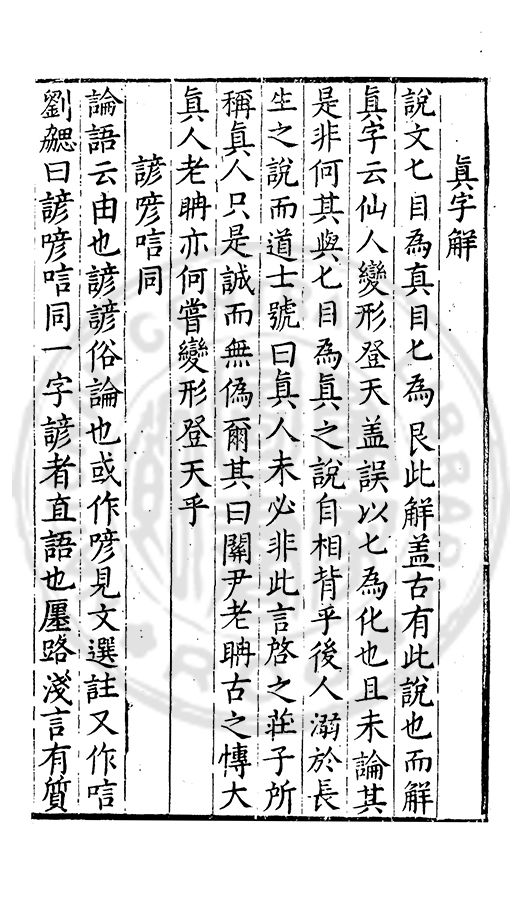 眞字解
說文匕目為真目匕為艮此解盖古有此說也而解
眞字云仙人變形登天盖誤以匕為化也且未論其
是非何其與匕目為眞之說自相背乎後人溺於長
生之說而道士號曰眞人未必非此言啓之莊子所
稱眞人只是誠而無偽爾其曰關尹老聃古之愽大
眞人老聃亦何嘗變形登天乎
諺喭唁同
論語云由也諺諺俗論也或作喭見文選註又作唁
劉勰曰諺喭唁同一字諺者直語也廛路淺言有質